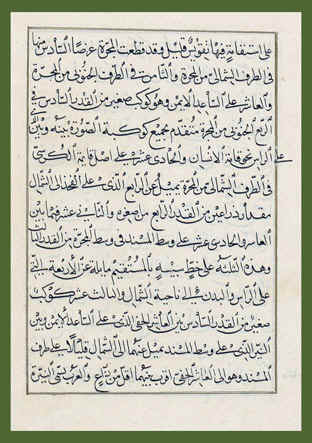 على استقامة فيها تقويس قليل وقد قطعت المجرة عرضا السادس منها
في الطرف الشمالي من المجرة والثامن في الطرف الجنوبي من المجرة
والعاشر على الساعد الايمن وهو كوكب صغير من القدر السادس في
الربع الجنوبي من المجرة متقدم لجميع كوكبة الصورة بينه وبين
الرابع نحو قامة الانسان والحادي عشر على اصل قايمة الكرسي
في الطرف الشمالي من المجرة يميل عن الرابع الذي على الفخذ الى الشمال
مقدار ذراعين من القدر الرابع من صغره والثاني عشر فيما بين
العاشر والحادي عشر على وسط المسند في وسط المجرة من القدر الثالث
وهذه الثلثة على خط شبيه بالمستقيم مايلة عن الاربعة التي
على الراس والبدن الى ناحية الشمال والثالث عشر كوكب
صغير من القدر السادس بين العاشر الخفي الذي على الساعد الايمن وبين
النير الذي على وسط المسند مميل عنهما الى الشمال قليلا على طرف
المسند وهو الى العاشر الخفي اقرب بينهما اقل من ذراع والعرب تسمي النيرة